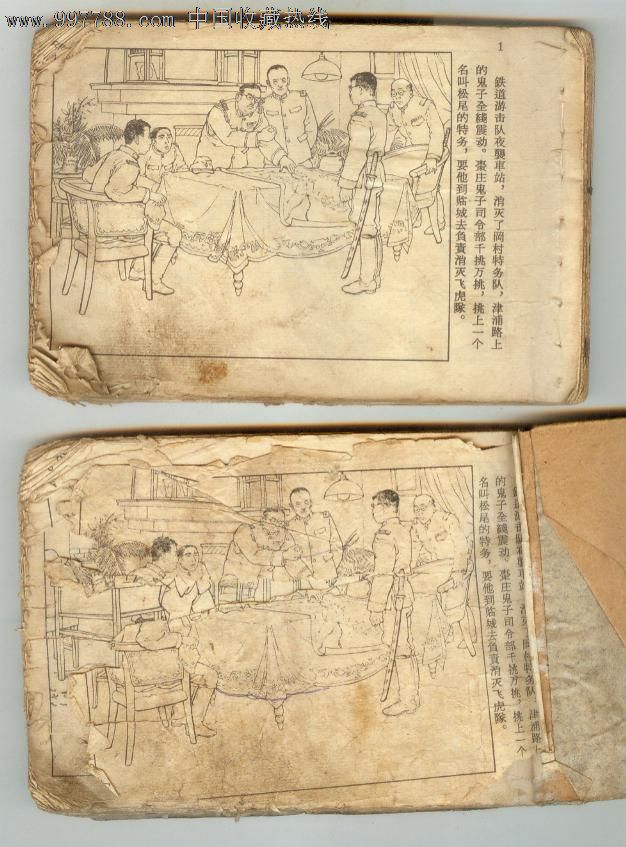 www.997788.com 中国收藏热线
1
鉄道游击队夜襲車站，消灭了岡村特务队，津浦路上
的鬼子全綫震动。棗庄鬼子司令部千挑万挑，挑上一个
名叫松尾的特务，要他到临城去負責消灭飞虎隊。
消灭 岡村特务队，津浦路上
的鬼子全綫震动。棗庄鬼子司令部千挑万挑，挑上一个
名叫松尾的特务，要他到临城去負責消灭飞虎隊。